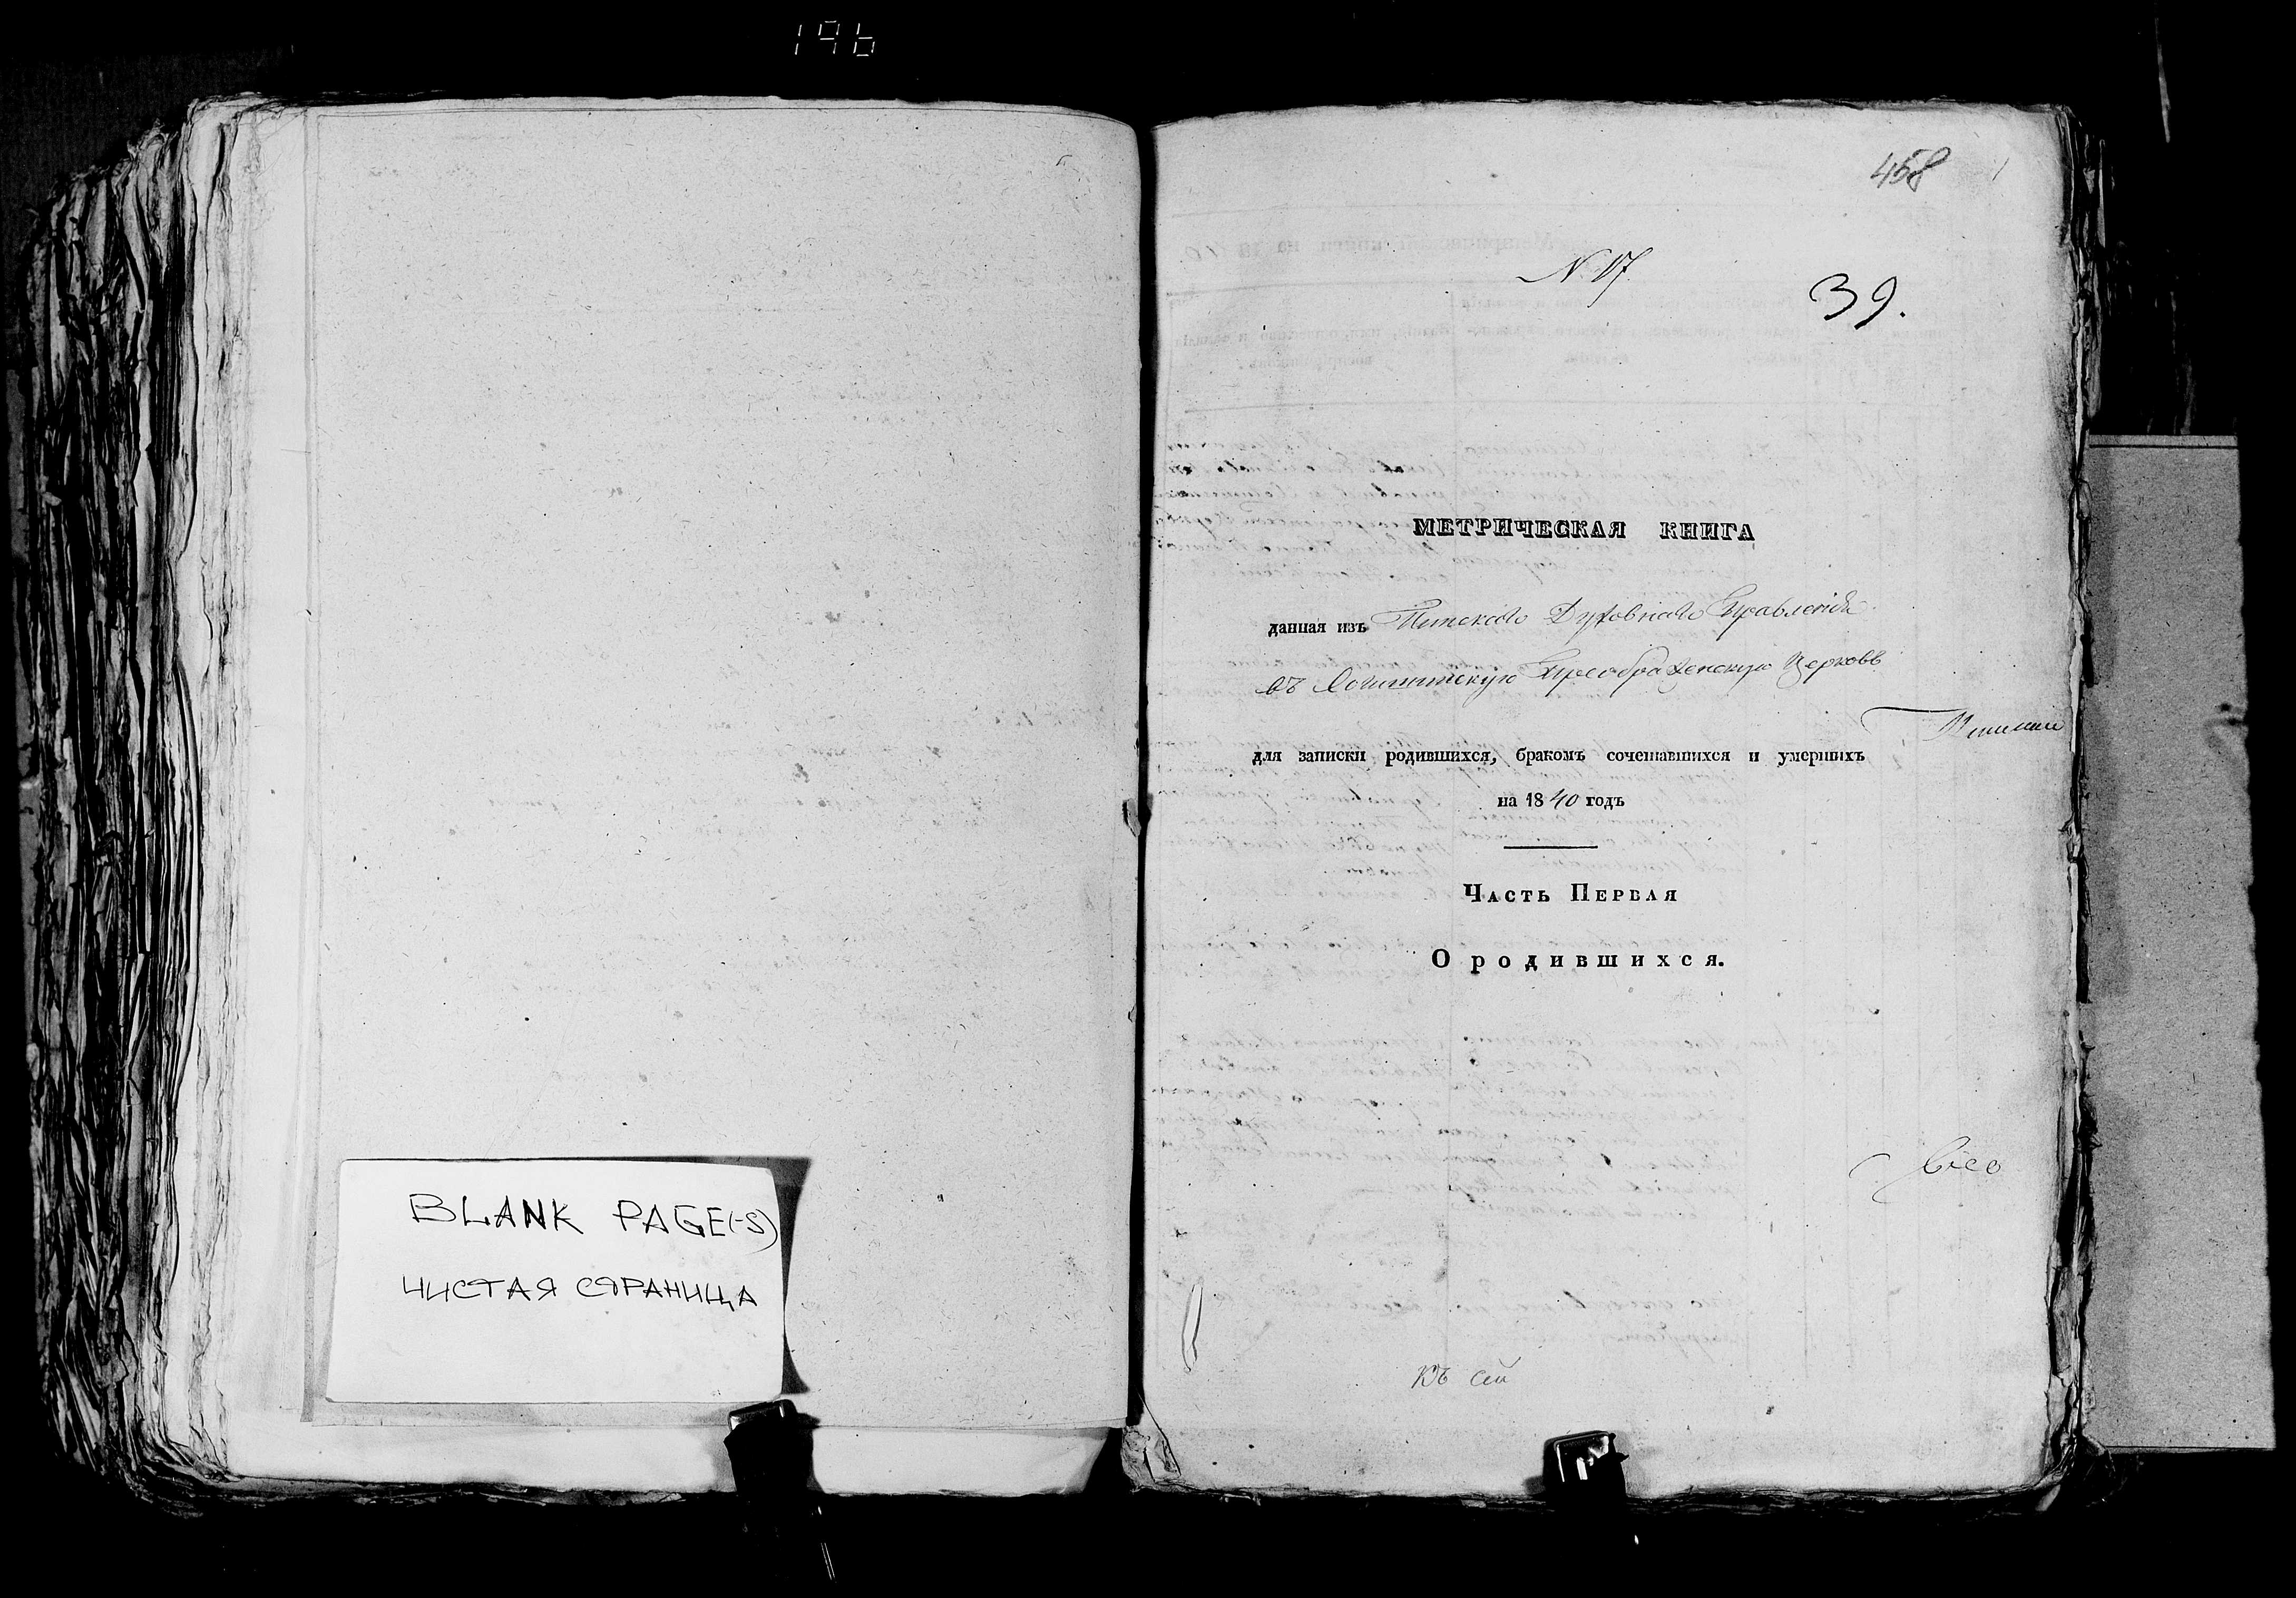 196
BLANK PAGE(-S)
ЧИСТАЯ СТРАНИЦА
458
N 17.
39.
МЕТРИЧЕСКАЯ КНИГА
данная изъ Пинскаго Духовнаго Правленія
въ Логишинскую Преображенскую Церковь
для записки родившихся, бракомъ сочетавшихся и умершихъ
на 1840 годъ
Часть Первая
О родившихся.
Къ сей